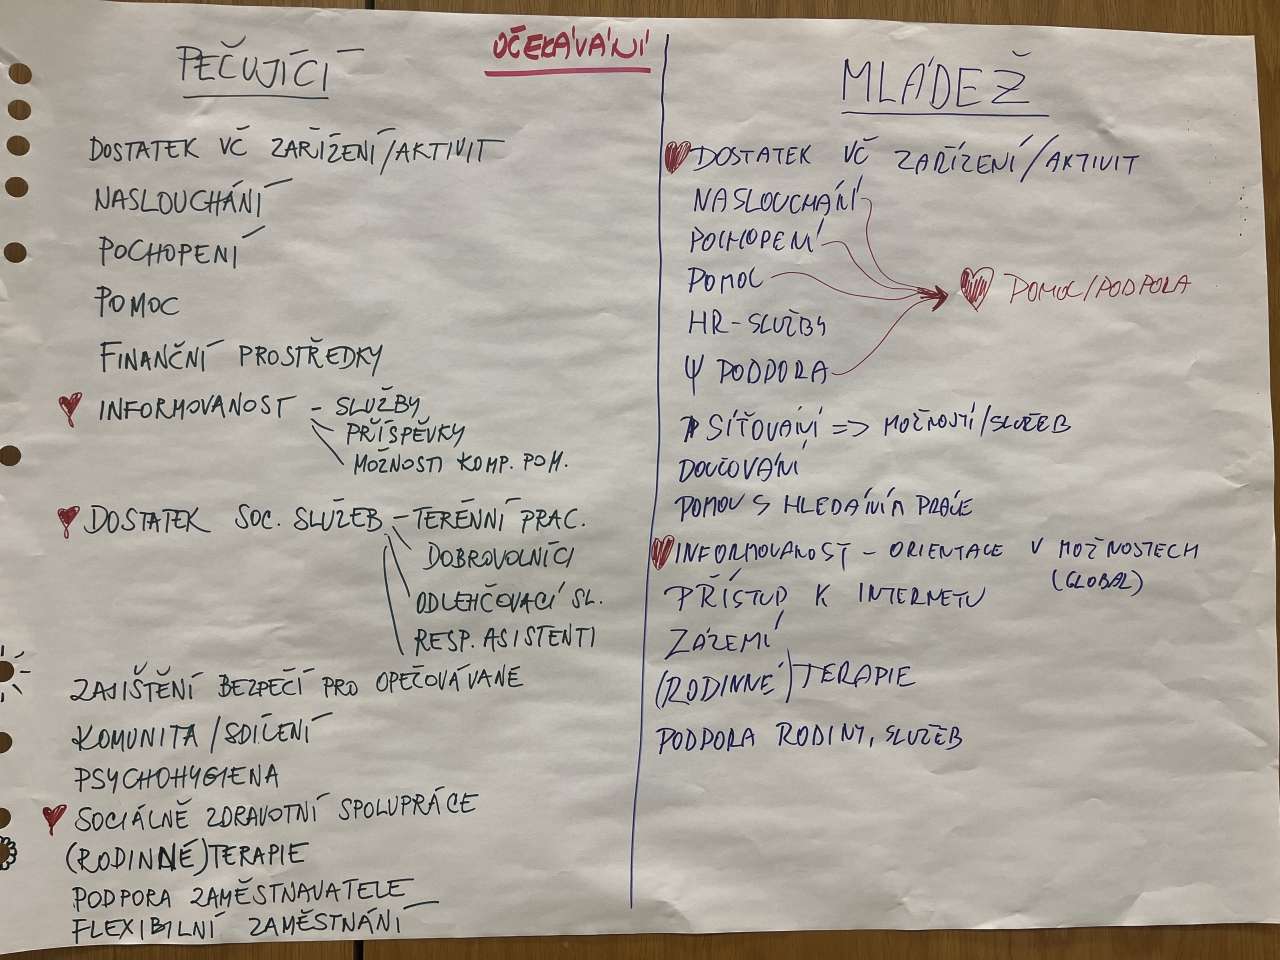 OČEKÁVÁNÍ
PEČUJÍCÍ
DOSTATEK VČ ZAŘÍZENÍ/AKTIVIT
NASLOUCHÁNÍ
POCHOPENÍ
POMOC
FINANČNÍ PROSTŘEDKY
INFORMOVANOST – SLUŽBY
PŘÍSPĚVKY
MOŽNOSTI KOMP. POM.
DOSTATEK SOC. SLUŽEB – TERÉNNÍ PRAC.
DOBROVOLNÍCI
ODLEHČOVACÍ SL.
RESP. ASISTENTI
ZAJIŠTĚNÍ BEZPEČÍ PRO OPEČOVÁVANÉ
KOMUNITA/SDÍLENÍ
PSYCHOHYGIENA
SOCIÁLNĚ ZDRAVOTNÍ SPOLUPRÁCE
(RODINNÉ) TERAPIE
PODPORA ZAMĚSTNAVATELE
FLEXIBILNÍ ZAMĚSTNÁNÍ
MLÁDEŽ
DOSTATEK VČ ZAŘÍZENÍ/AKTIVIT
NASLOUCHÁNÍ
POCHOPENÍ
POMOC
POMOC/PODPORA
HR-SLUŽBY
Ψ PODPORA
SÍŤOVÁNÍ => MOŽNOSTÍ/SLUŽEB
DOUČOVÁNÍ
POMOC S HLEDÁNÍM PRÁCE
INFORMOVANOST – ORIENTACE V MOŽNOSTECH
(GLOBAL)
PŘÍSTUP K INTERNETU
ZÁZEMÍ
(RODINNÉ) TERAPIE
PODPORA RODINY, SLUŽEB